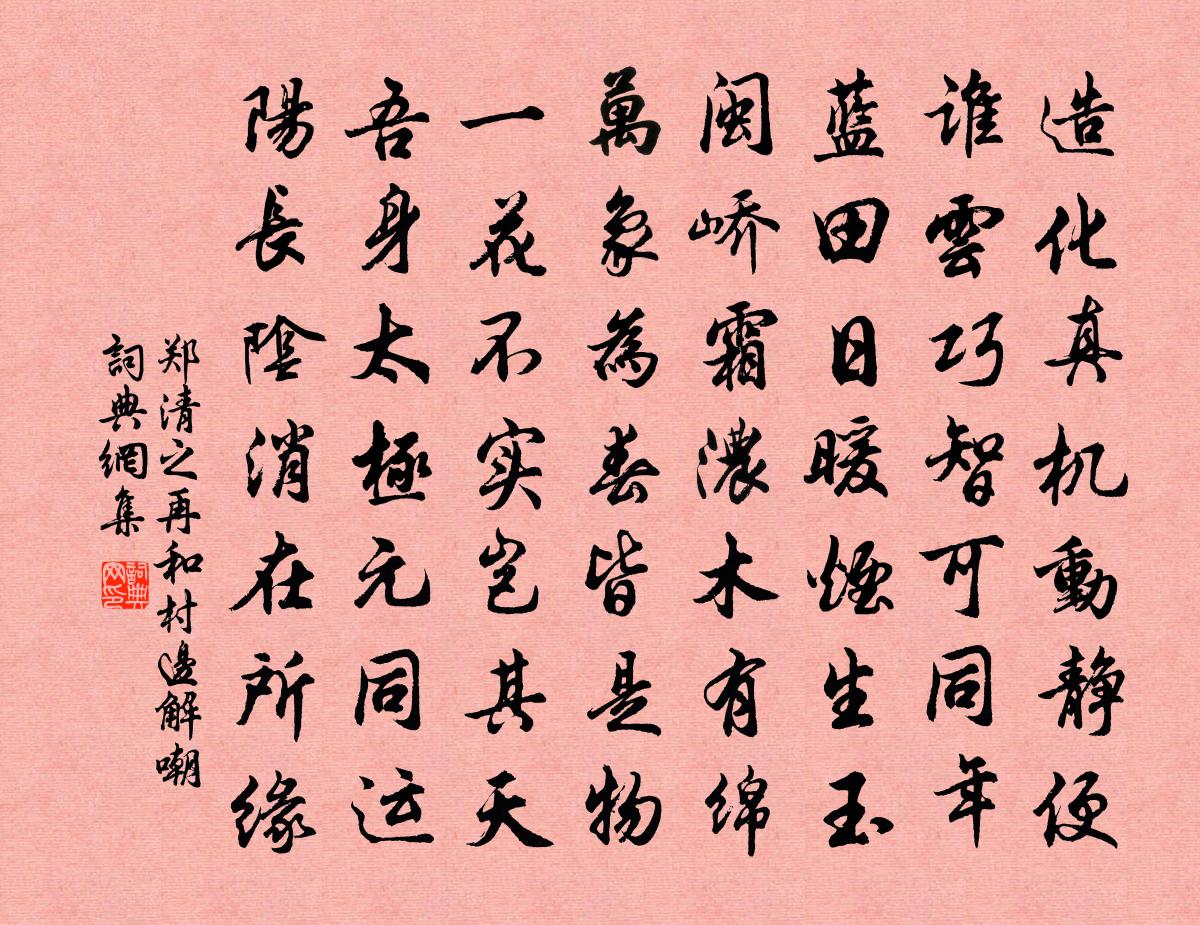 造化真机動静便
谁雲巧智可同年
蓝田日暖煙生玉
闽峤霜濃木有绵
萬象為春皆是物
一花不实岂其天
吾身太極元同运
陽長陰消在所缘
郑清之再和村邊解嘲
詞典網集
詞典网印